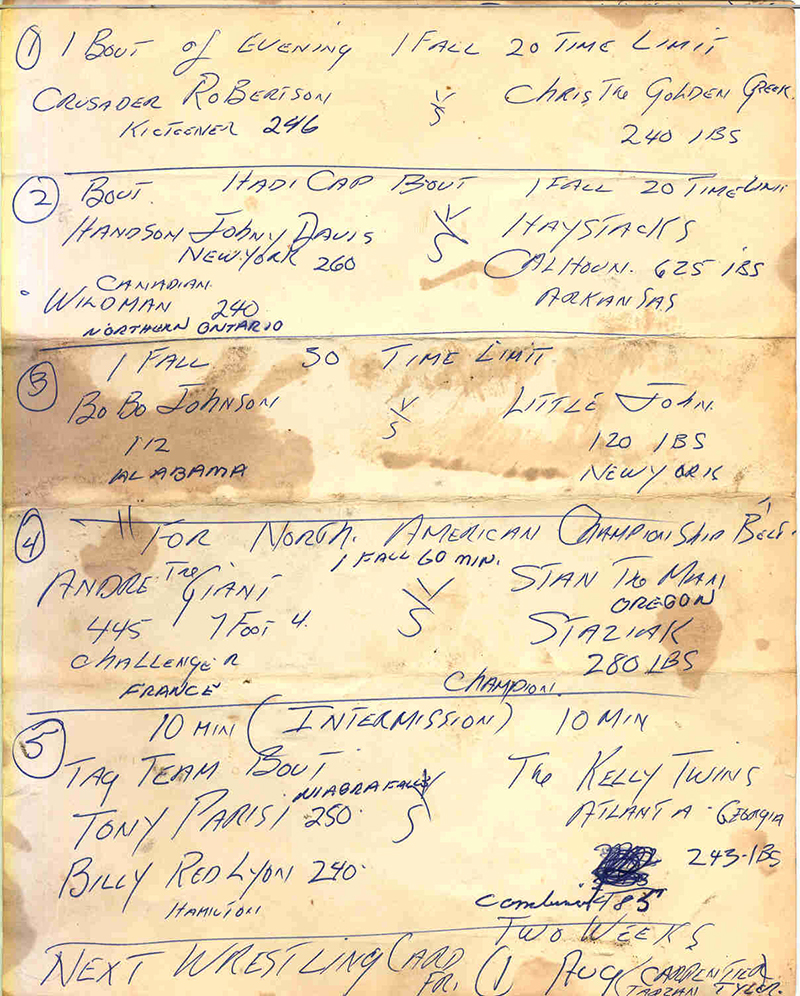 ① 1 BOUT of EVENING 1 FALL 20 TIME LIMIT
CRUSADER ROBERTSON VS CHRIS THE GOLDEN GREEK.
KICTEENER 246 240 LBS
② BOUT. HADICAP BOUT 1 FALL 20 TIME LIMIT
HANDSON JOHNY DAVIS VS HAYSTACKS
NEW YORK 260 CALHOUN. 625 LBS
CANADIAN. ARKANSAS
WILDMAN 240
NORTHERN ONTARIO
③ 1 FALL 30 TIME LIMIT
BOBO JOHNSON VS LITTLE JOHN.
112 120 LBS
ALABAMA NEW YORK
④ " FOR NORTH. AMERICAN CHAMPIONSHIP BELT.
1 FALL 60 MIN.
ANDRE THE GIANT VS STAN THE MAN
OREGON
445 7 FOOT 4. STAZIAK
CHALLENGER 280 LBS
FRANCE CHAMPION.
⑤ 10 MIN (INTERMISSION) 10 MIN
TAG TEAM BOUT VS THE KELLY TWINS
NIAGRA FALLS ATLANTA GEORGIA
TONY PARISI 250. 243-LBS
BILLY RED LYON 240.
HAMILTON 485
TWO WEEKS
NEXT WRESTLING CARD FRI. (1 AUG) CARPENTIER
TARZAN TYLER.